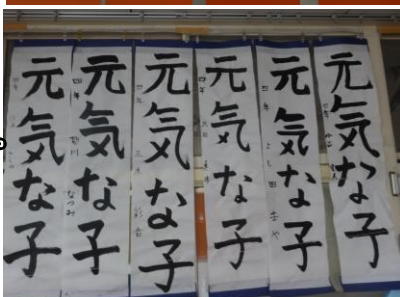 元気な子
元気な子
元気な子
元気な子
元気な子
元気な子